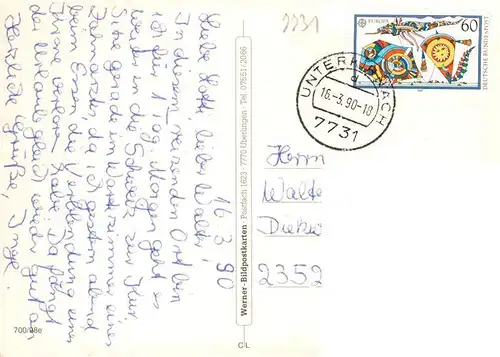 16. 3. 90
Liebe Lotti, lieber Walter,
In diesem reizenden Ort bin
ich für 1 Tag, Morgen geht es
weiter in die Schweiz zur Kur.
Sitze gerade im Wartezimmer eines
Zahnarztes, da ich gestern abend
beim Essen die Verblendung einer
Krone verloren habe. Da fängt
der Urlaub gleich wieder gut an.
Herzliche Grüße, Inge.
700/98e
Werner-Bildpostkarten · Postfach 1623 · 7770 Überlingen · Tel. 07551/2066
C L
7731
EUROPA
60
DEUTSCHE BUNDESPOST
UNTERKIRNACH
a
16.-3.90-10
7731
Herrn
Walte
2352